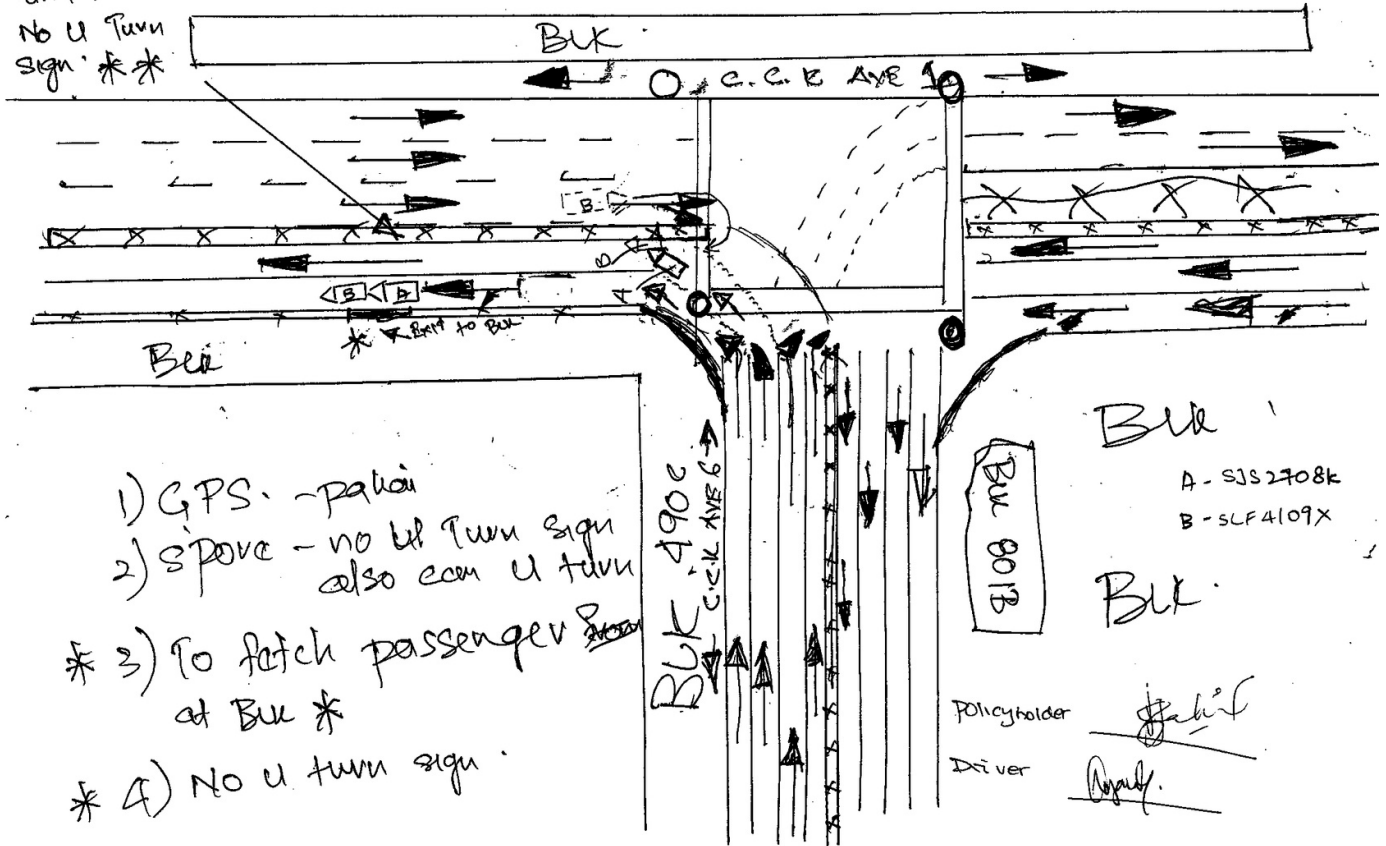 No U Turn
sign * *
BLK
C.C.K AVE 1
B
B
A
B
A
* Exit to BLK
BLK
1) GPS. - pakai
2) S'pore - no U Turn sign
also can U turn
* 3) To fetch passenger
at BLK *
* 4) NO U turn sign
BLK 490C
C.C.K AVE 6
BLK 801B
BLK
A - SJS2708K
B - SLF4109X
BLK
Policyholder
Driver